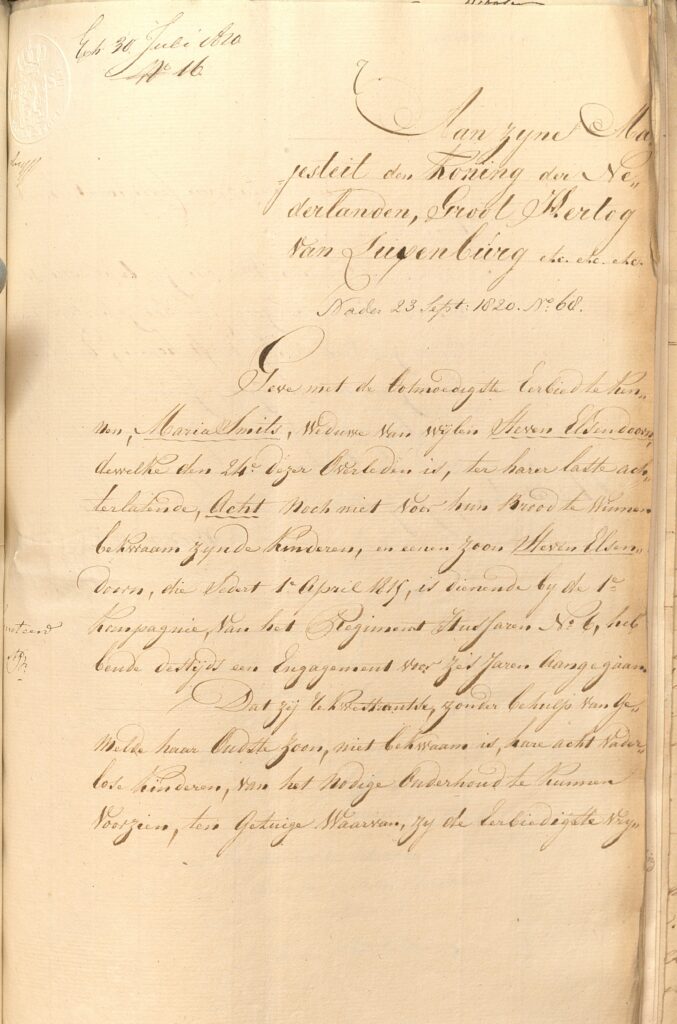 Ex 30 Juli 1820
No 16
Aan zyne Ma„
jesteit den Koning der Ne„
derlanden, Groot Hertog
van Luxenburg etc. etc. etc.
Nader 23 Sept: 1820. No 68.
Geve met de Ootmoedigste Eerbied te Ken„
nen, Maria Smits, Weduwe van wylen Steven Elsendoorn,
dewelke den 24e dezer Overleden is, ter harer laste ach„
terlatende, Acht noch niet voor hun Brood te Winnen
bekwaam zynde Kinderen, en eenen zoon Steven Elsen„
doorn, die sedert 1e April 1815, is dienende by de 1e
Kompagnie, van het Regiment Hussaren No 6, heb
bende destijds een Engagement voor zes Jaren aangegaan
Dat zij Rekwestrante, zonder behulp van Ge„
melde haar Oudste zoon, niet bekwaam is, hare acht vader„
lose Kinderen, van het nodige Onderhoud te kunnen
Voorzien, ten Getuige Waarvan, zy de Eerbiedigste Vry„